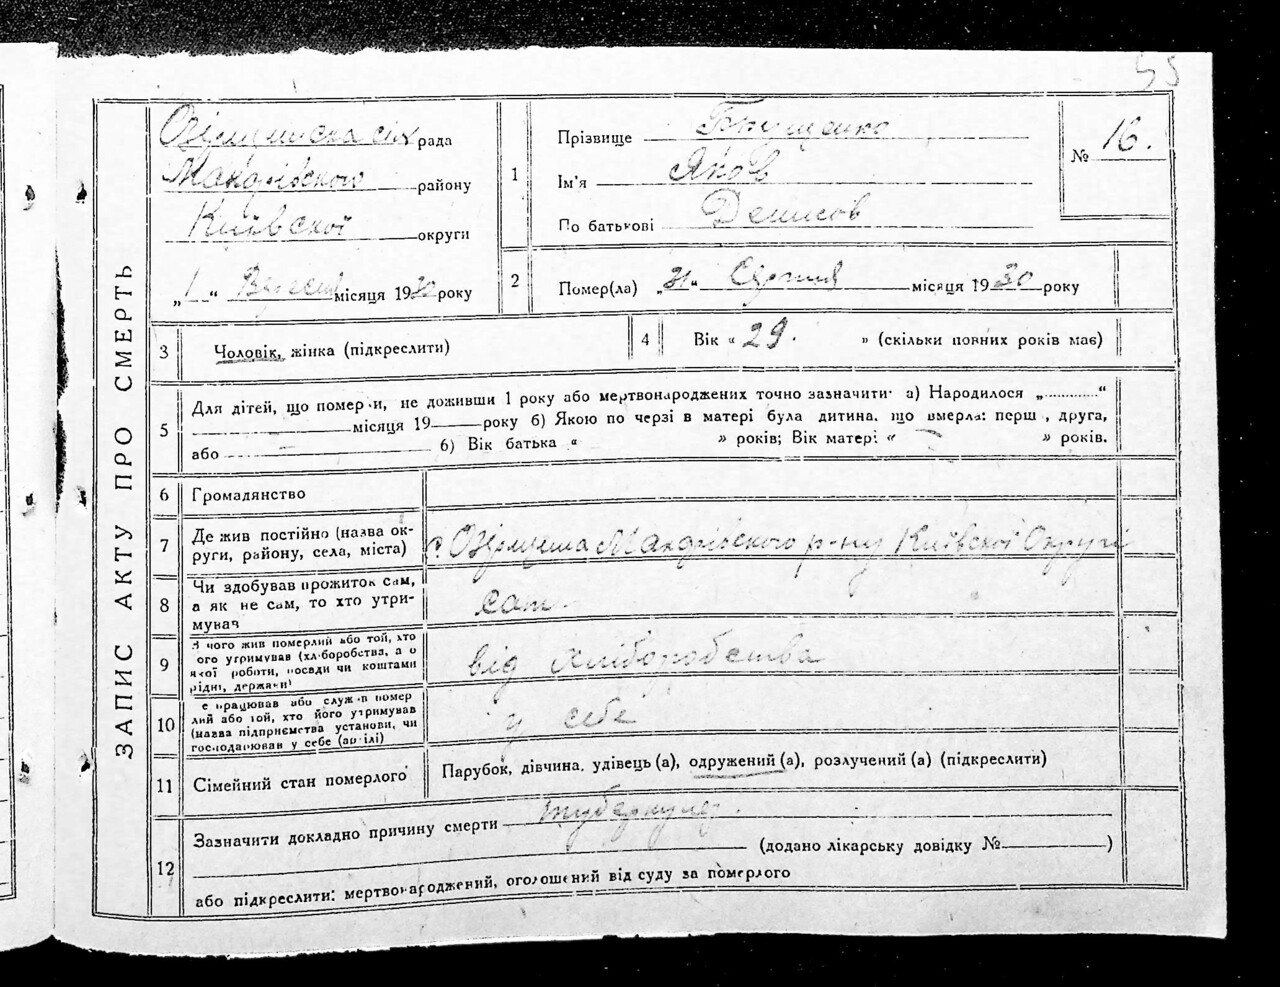 55
ЗАПИС АКТУ ПРО СМЕРТЬ
рада
Макарівського району
Київської округи
„1“ Вересня місяця 1930 року
1
Прізвище
Ім'я Яков
По батькові Денисов
№ 16.
2
Помер(ла) „31“ Серпня місяця 1930 року
3
Чоловік, жінка (підкреслити)
4
Вік « 29. » (скільки повних років має)
5
Для дітей, що померли, не доживши 1 року або мертвонароджених точно зазначити: а) Народилося „ “
місяця 19 року б) Якою по черзі в матері була дитина, що вмерла: перш , друга,
або б) Вік батька « » років; Вік матері « » років.
6
Громадянство
7
Де жив постійно (назва ок-
руги, району, села, міста)
с. Макарівського р-ну Київської Округи
8
Чи здобував прожиток сам,
а як не сам, то хто утри-
мував
сам
9
З чого жив померлий або той, хто
ого утримував (хл-боробства, а о
якої роботи, посади чи коштами
рідні, держави)
від хліборобства
10
е працював або служив помер
лий або той, хто його утримував
(назва підприємства установи, чи
господарював у себе (ар ілі)
у себе
11
Сімейний стан померлого
Парубок, дівчина, удівець (а), одружений (а), розлучений (а) (підкреслити)
12
Зазначити докладно причину смерти туберкулез.
(додано лікарську довідку № )
або підкреслити: мертвонароджений, оголошений від суду за померлого